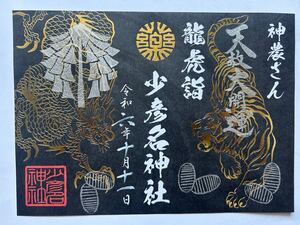 神農さん
天赦大開運
龍虎詣
少彦名神社
令和六年十月十一日
少彦名
神社